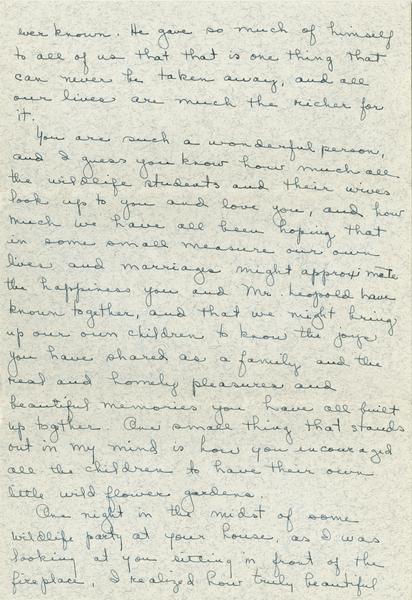 ever known. He gave so much of himself
to all of us that that is one thing that
can never be taken away, and all
our lives are much the richer for
it.
You are such a wonderful person,
and I guess you know how much all
the wildlife students and their wives
look up to you and love you, and how
much we have all been hoping that
in some small measure our own
lives and marriages might approximate
the happiness you and Mr. Leopold have
known together, and that we might bring
up our own children to know the joys
you have shared as a family and the
real and homely pleasures and
beautiful memories you have all built
up together. One small thing that stands
out in my mind is how you encouraged
all the children to have their own
little wild flower gardens.
One night in the midst of some
wildlife party at your house, as I was
looking at you sitting in front of the
fireplace, I realized how truly beautiful